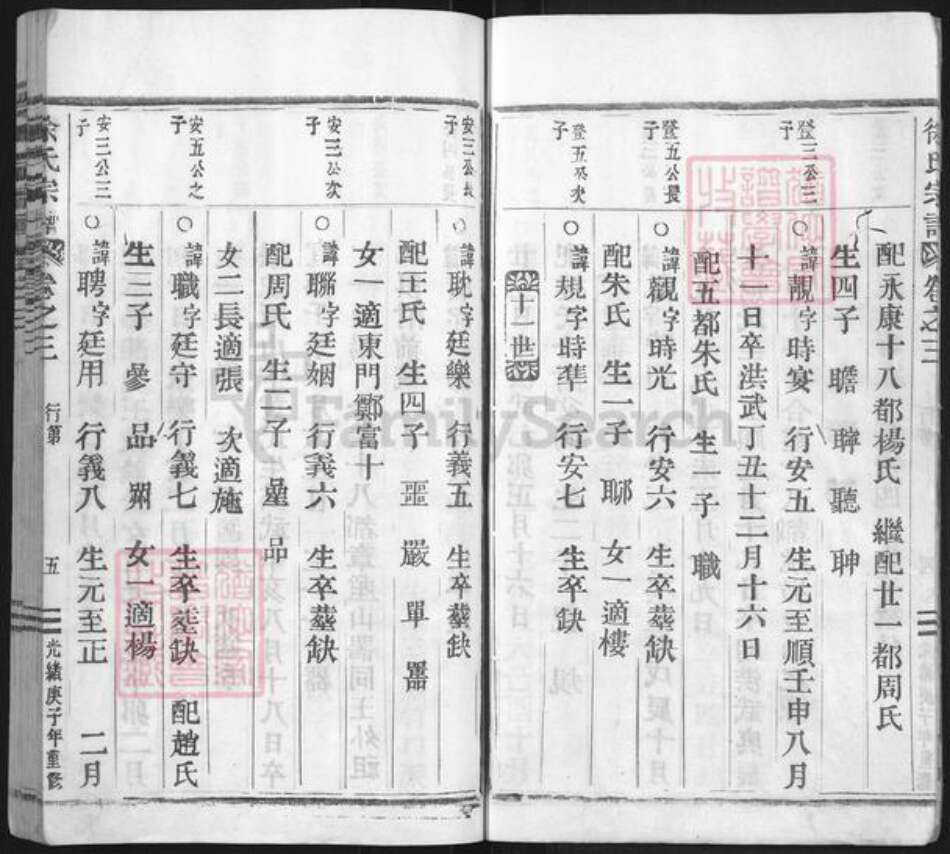 徐氏宗譜 卷之三
配永康十八都楊氏 繼配廿一都周氏
生四子 瞻 聹 聽 聃
登三公三子
○諱靚字時宴 行安五 生元至順壬申八月
十一日卒洪武丁丑十二月十六日
配五都朱氏 生一子 職
登五公長子
○諱觀字時光 行安六 生卒塟缺
配朱氏 生一子 聊 女一適樓
登五公次子
○諱規字時準 行安七 生卒缺
十一世
安三公長子
○諱耽字廷樂 行義五 生卒塟缺
配王氏 生四子 噩 嚴 單 器
女一適東門鄭富十
安三公次子
○諱聮字廷姻 行義六 生卒塟缺
配周氏 生二子 㬅 品
女二長適張 次適施
安五公之子
○諱職字廷守 行義七 生卒塟缺 配趙氏
生三子 參 品 女一適楊
安三公三子
○諱聘字廷用 行義八 生元至正 二月
徐氏宗譜 卷之三 行第 五 光緒庚子年重修
FamilySearch